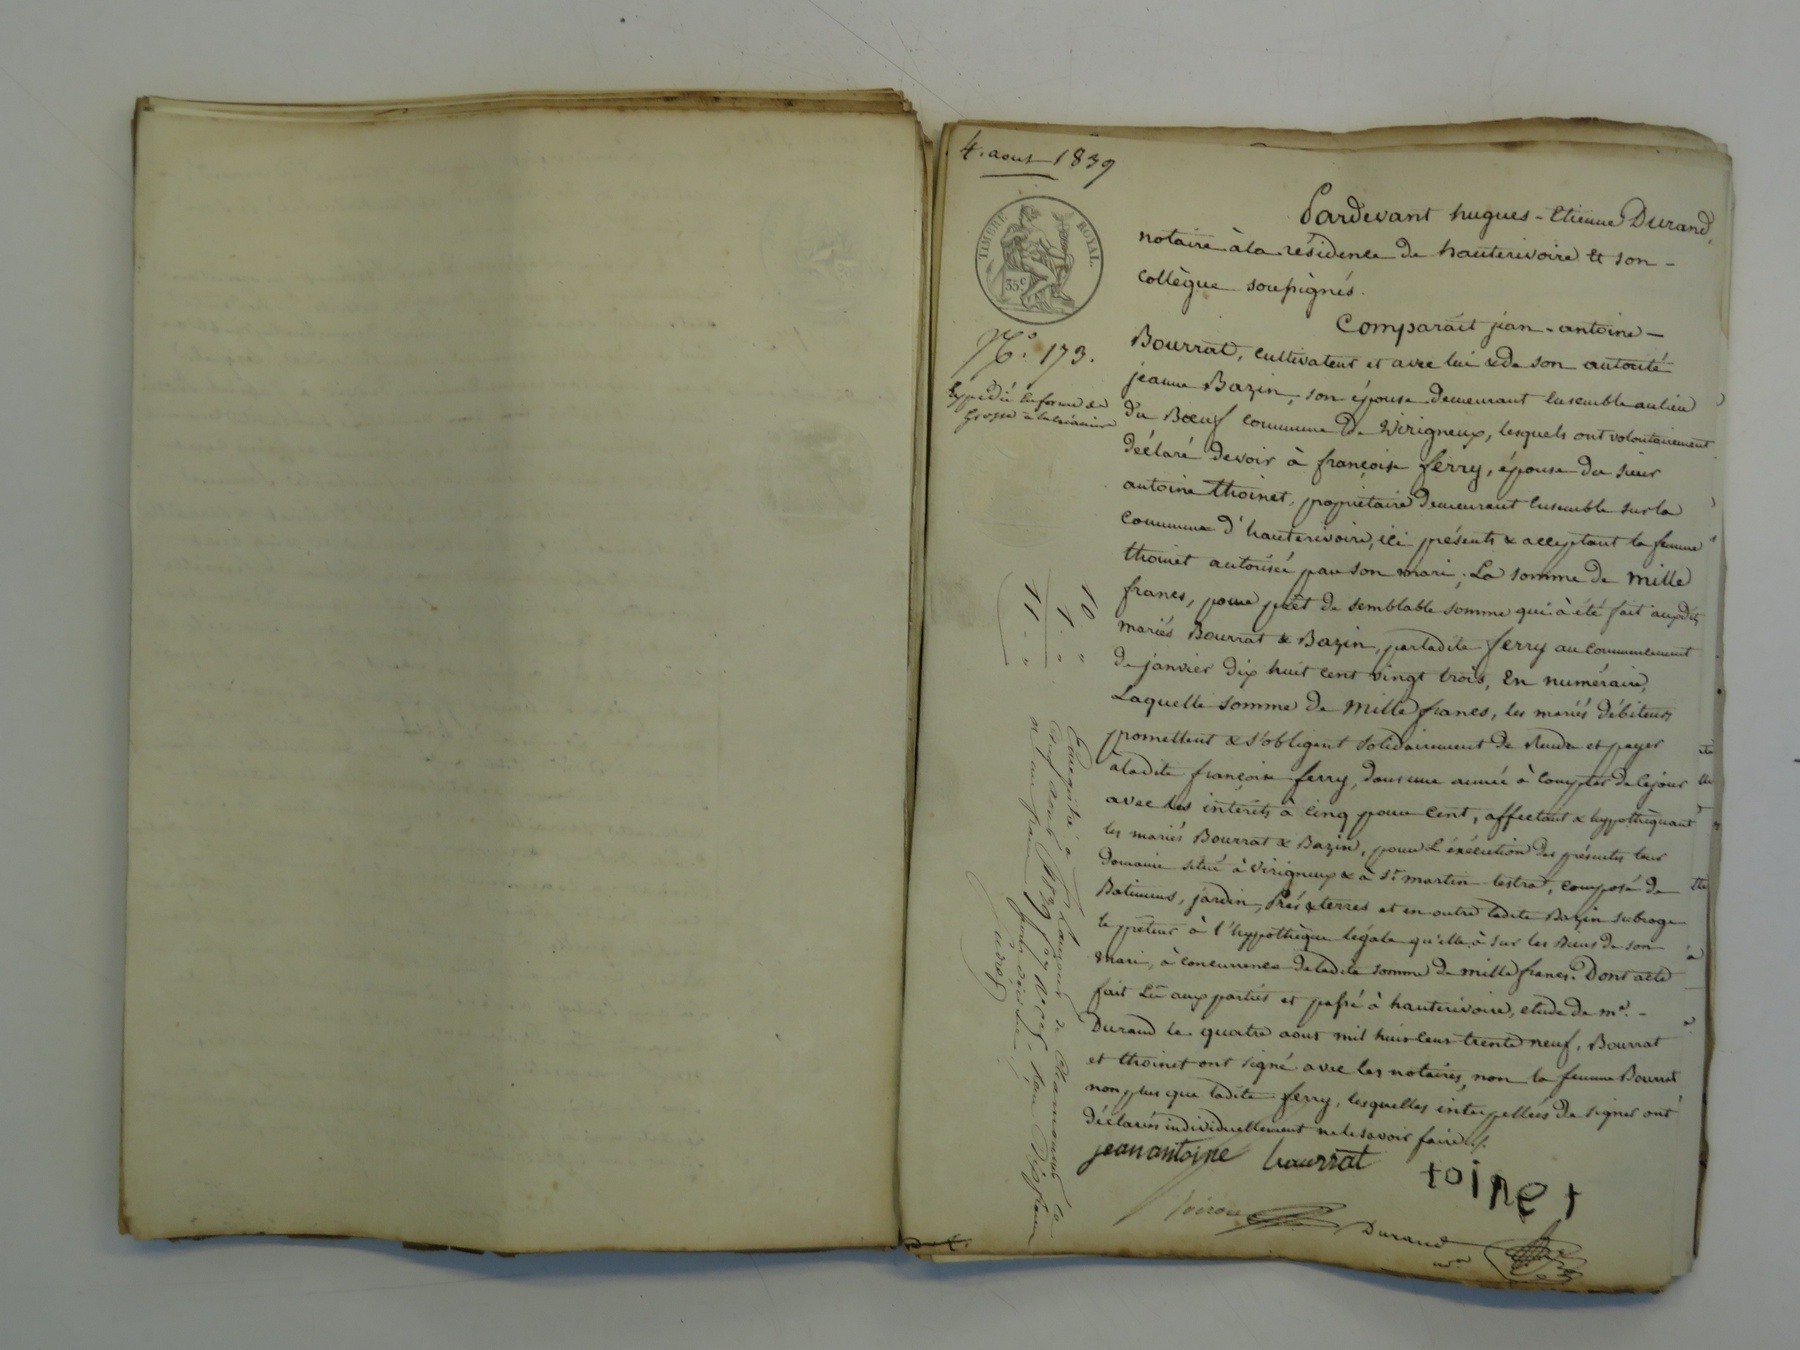 4. aout 1839
TIMBRE ROYAL.
35 c
N.° 173.
Expédié en forme de
Grosse à la créancière
Pardevant hugues-Etienne Durand,
notaire à la résidence de hauterivoire et son-
collègue soussignés.
Comparait jean-antoine-
Bourrat, cultivateur et avec lui & de son autorité
jeanne Bazin, son épouse demeurant ensemble au lieu
du Bœuf commune de Virigneux, lesquels ont volontairement
déclaré devoir à françoise ferry, épouse du sieur
antoine thoinet, propriétaire demeurant ensemble sur la
commune d'hauterivoire, ici présents & acceptant la femme
thoinet autorisée par son mari; La somme de mille
francs, pour prêt de semblable somme qui à été fait auxdits
mariés Bourrat & Bazin, par ladite ferry au commencement
de janvier dix huit cent vingt trois, En numéraire,
Laquelle somme de mille francs, les mariés débiteurs
promettent & s'obligent solidairement de rendre et payer
à ladite françoise ferry, dans une année à compter de ce jour
avec les intérêts à cinq pour cent, affectant & hypothéquant
les mariés Bourrat & Bazin, pour L'éxécution des présentes leur
domaine situé à Virigneux & à St. martin-lestra, composé de
Batimens, jardin, Prés & terres et en outre ladite Bazin subroge
le prêteur à l'hyppothèque légale qu'elle à sur les Biens de son
mari, à concurrence de ladite somme de mille francs. Dont acte
fait Lû aux parties et passé à hauterivoire, etude de me.-
Durand le quatre aout mil huit cent trente neuf, Bourrat
et thoinet ont signé avec les notaires, non la femme Bourrat
non plus que ladite ferry, lesquelles interpellées de signer ont
déclarés individuellement ne le savoir faire ./.
jean antoine bourrat
toinet
Durand
10 "
1 . "
11 . "
Enregistré à St Laurent de Chamousset le
cinq aout 1839